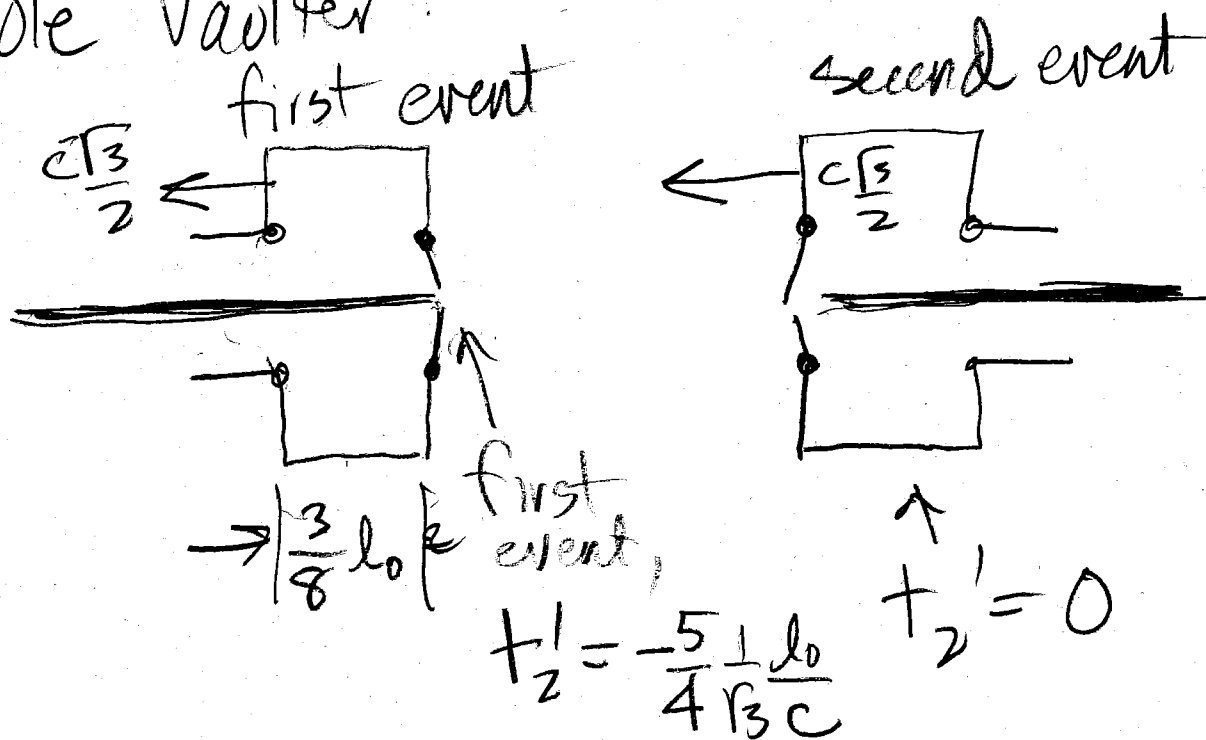 ole Vaulter.
first event
second event
c√3/2
c√3/2
3/8 l₀
first
event,
t₂' = -5/4 1/√3 l₀/c
t₂' = 0